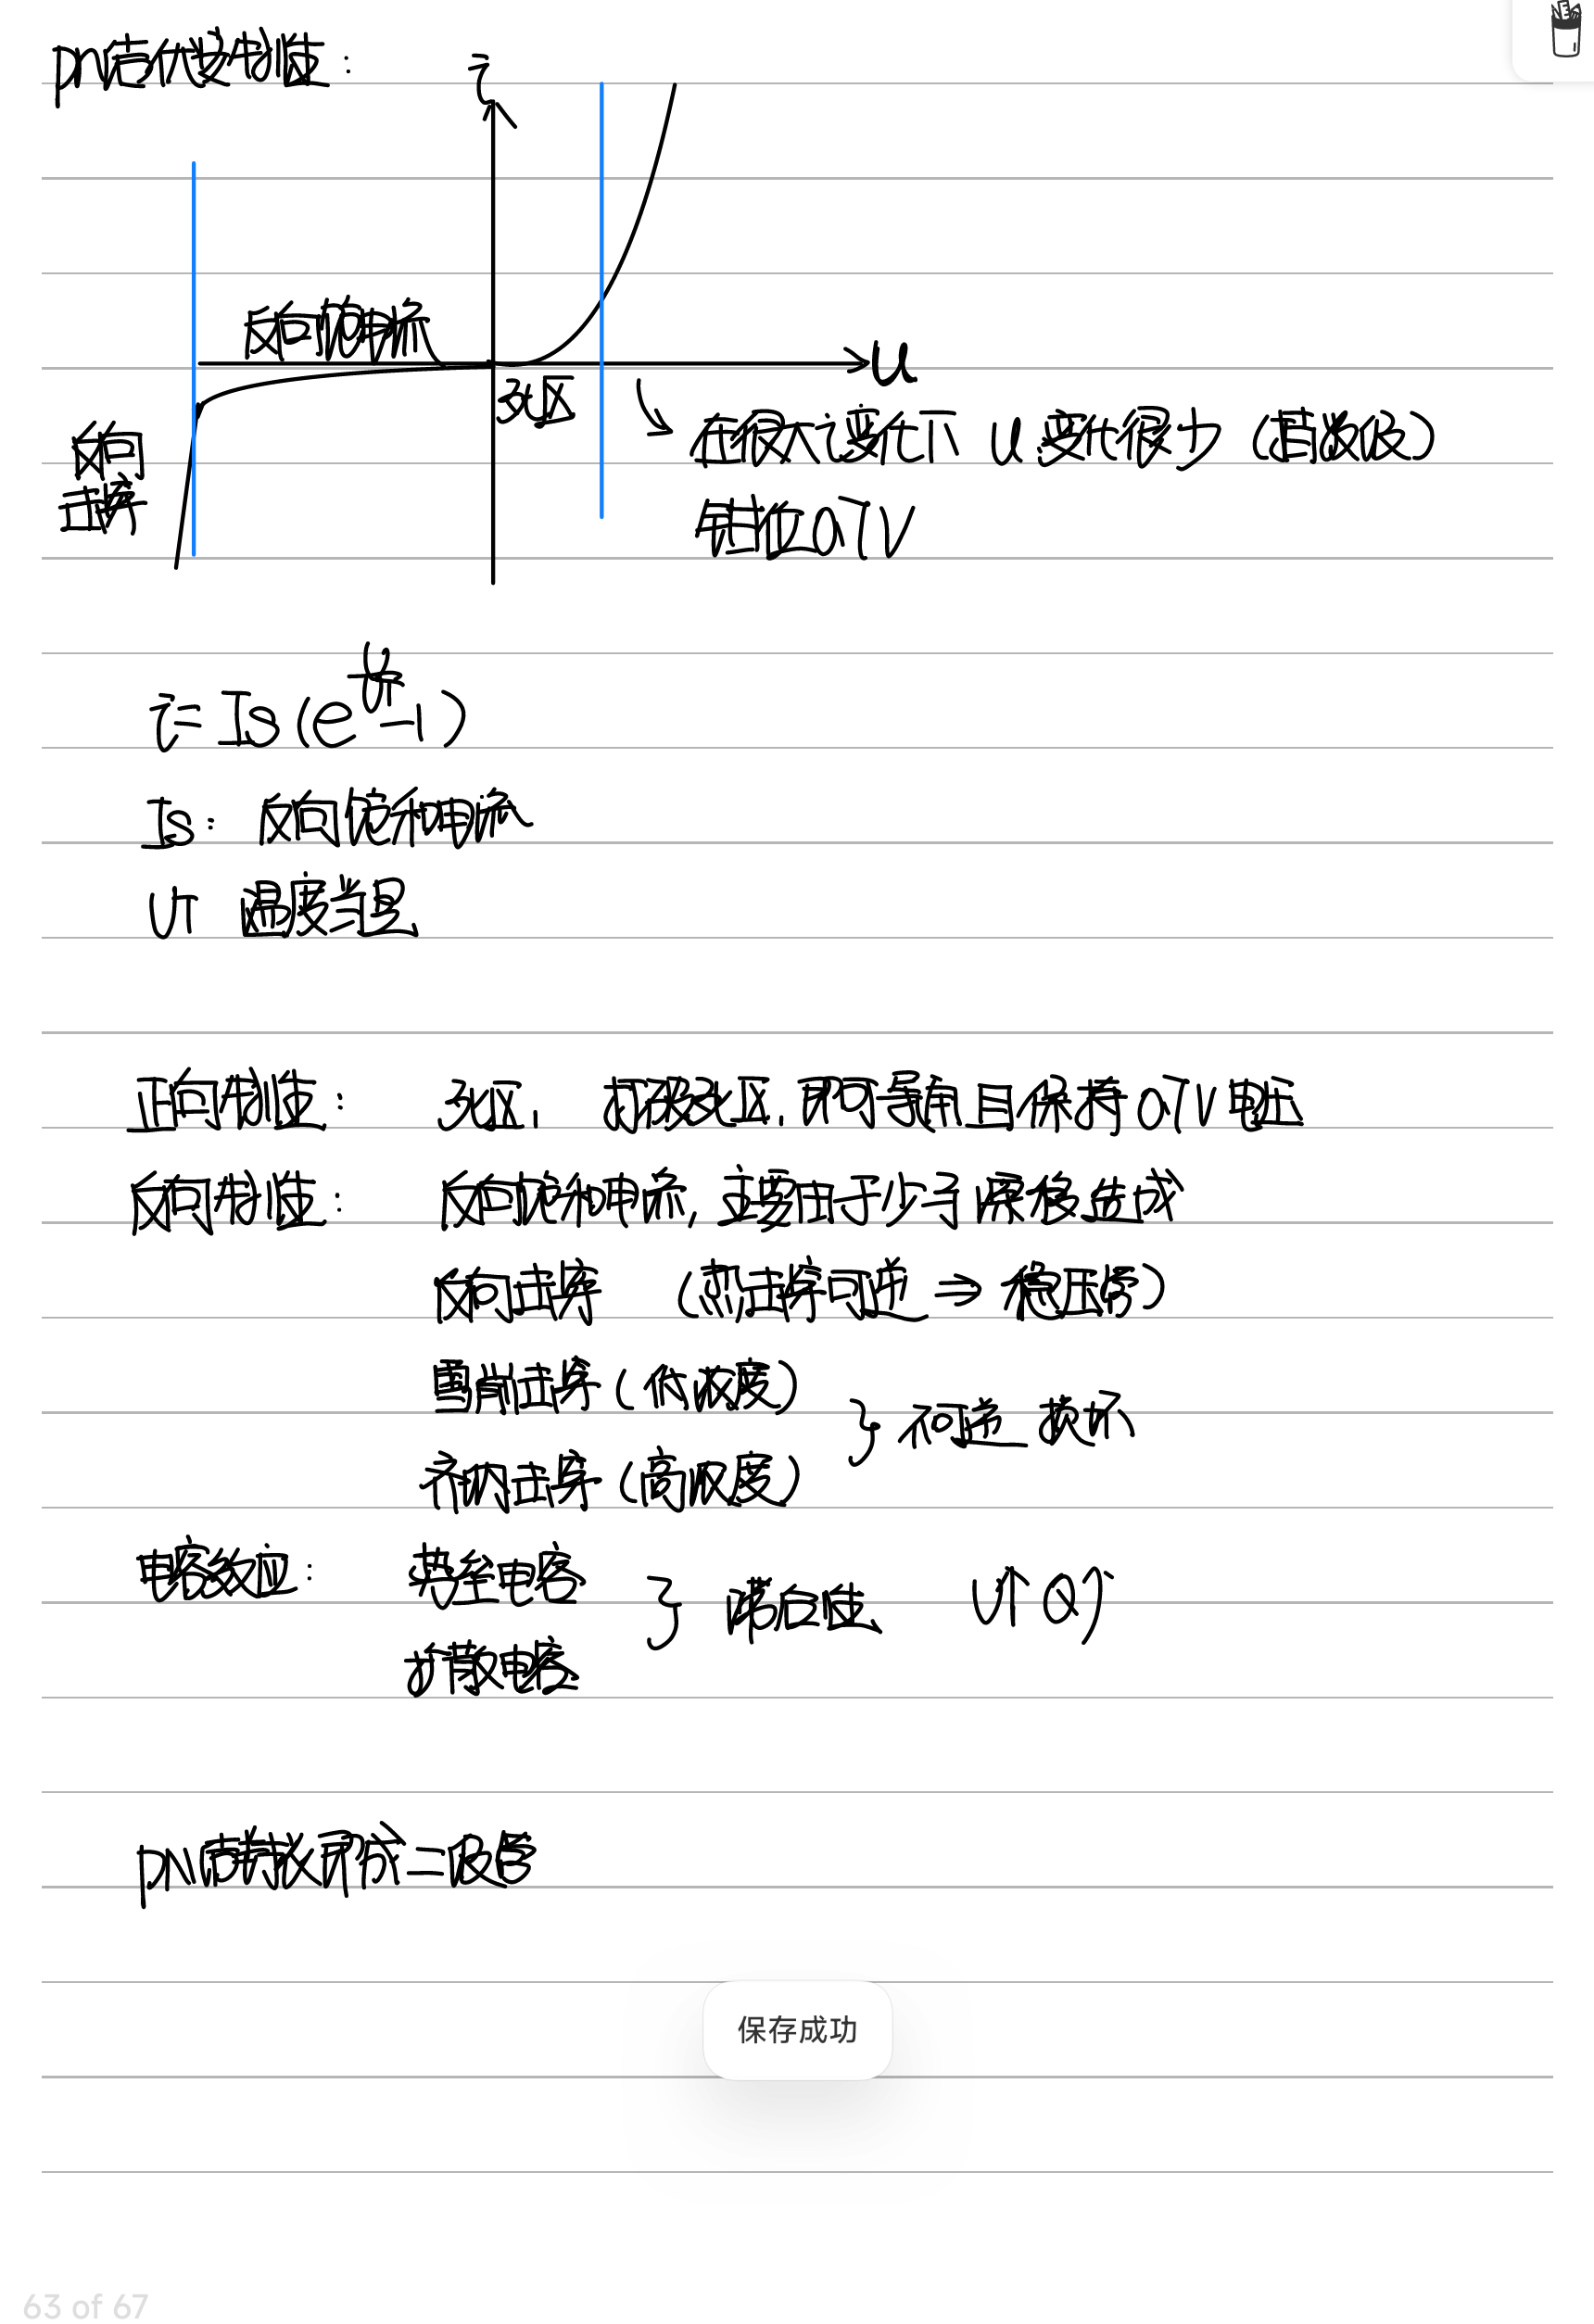 PN结伏安特性：
i
反向饱和电流
u
死区
反向
击穿
在很大i变化下 u变化很少（指数级）
钳位0.7V
i=Is(e^{U/UT}-1)
Is：反向饱和电流
UT 温度当量
正向特性： 死区，打破死区，即可导通且保持0.7V电压
反向特性： 反向饱和电流，主要由于少子漂移造成
反向击穿 （热击穿可逆⇒稳压管）
雪崩击穿（低浓度）
齐纳击穿（高浓度）
} 不可逆 损坏
电容效应： 势垒电容
扩散电容
} 滞后性 U↑Q↑
PN结封装形成二极管
保存成功
63 of 67